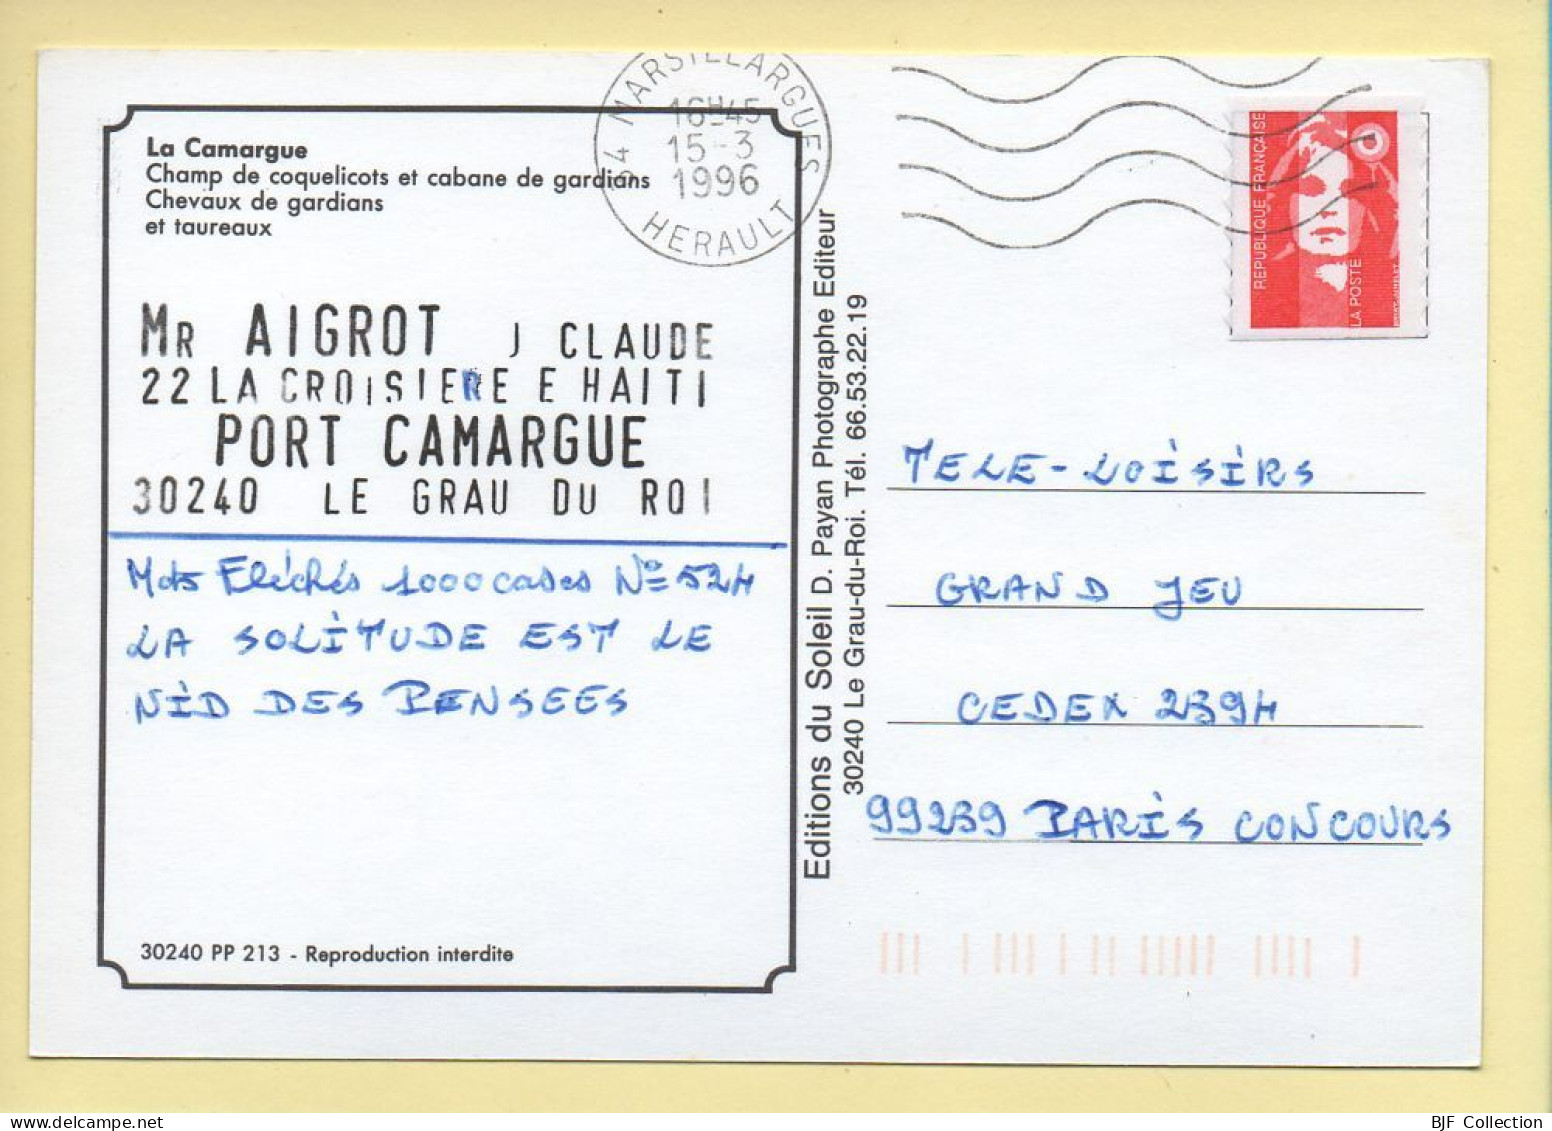 34 MARSILLARGUES
16H45
15-3
1996
HERAULT
La Camargue
Champ de coquelicots et cabane de gardians
Chevaux de gardians
et taureaux
MR AIGROT J CLAUDE
22 LA CROISIERE E HAITI
PORT CAMARGUE
30240 LE GRAU DU ROI
Mots Fléchés 1000 cases N° 524
LA SOLITUDE EST LE
NID DES PENSEES
30240 PP 213 - Reproduction interdite
Editions du Soleil D. Payan Photographe Editeur
30240 Le Grau-du-Roi. Tél. 66.53.22.19
REPUBLIQUE FRANÇAISE
LA POSTE
TELE-LOISIRS
GRAND JEU
CEDEX 2394
99239 PARIS CONCOURS
BJF Collection